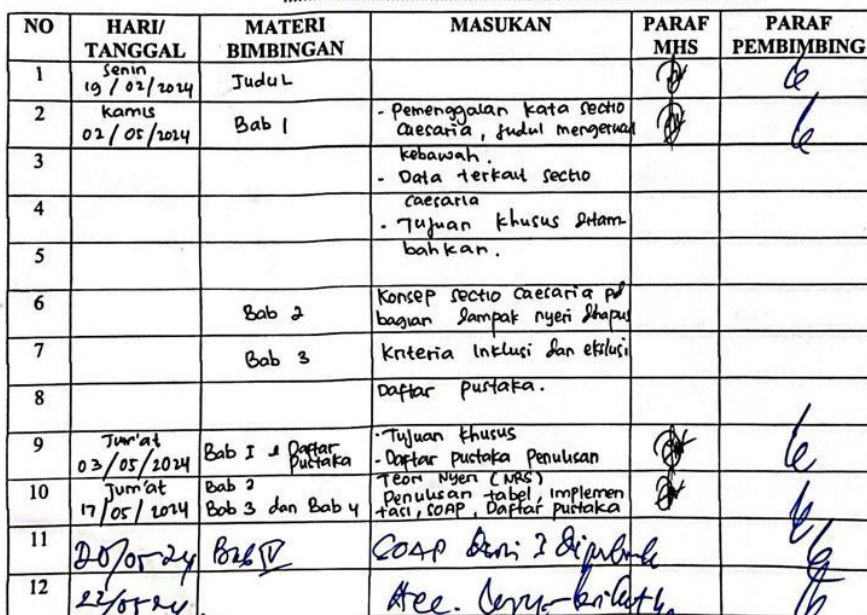 NO HARI/ TANGGAL MATERI BIMBINGAN MASUKAN PARAF MHS PARAF PEMBIMBING
1 Senin 19/02/2024 Judul
2 Kamis 02/05/2024 Bab 1 - Pemenggalan kata sectio
caesaria, judul mengerucut
3 kebawah.
- Data terkait sectio
4 caesaria
- Tujuan khusus ditam-
5 bahkan.
6 Bab 2 Konsep sectio caesaria pd
bagian dampak nyeri dihapus
7 Bab 3 Kriteria Inklusi dan eklusi
8 Daftar pustaka.
9 Jum'at 03/05/2024 Bab I & Daftar Pustaka - Tujuan khusus
- Daftar pustaka Penulisan
10 Jum'at 17/05/2024 Bab 2 Teori Nyeri (NRS)
Bab 3 dan Bab 4 Penulisan tabel, Implemen
tasi, SOAP, Daftar pustaka
11 20/05-24 Bab IV SOAP
12 22/05-24. Acc.